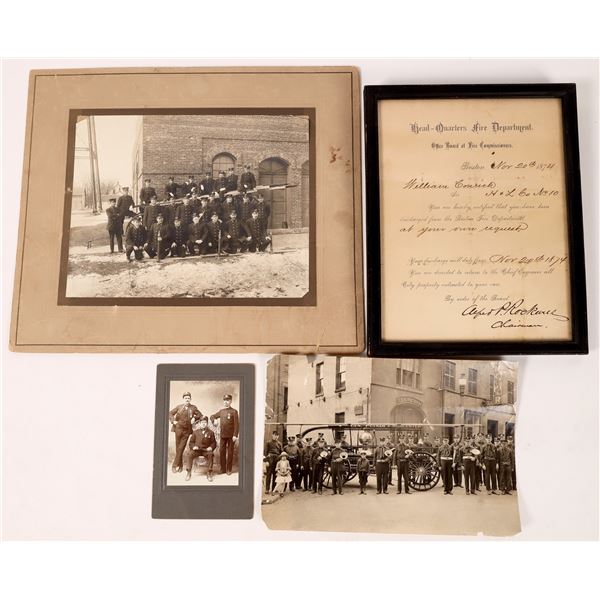 Head-Quarters Fire Department.
Office Board of Fire Commissioners.
Boston Nov 20th 1874
William
H & L Co No 10
You are hereby notified that you have been
discharged from the Boston Fire Department
at your own request.
Your discharge will date from Nov 20th 1874
You are directed to return to the Chief Engineer all
City property entrusted to your care.
By order of the Board
Alfred P. Rockwell
Chairman.